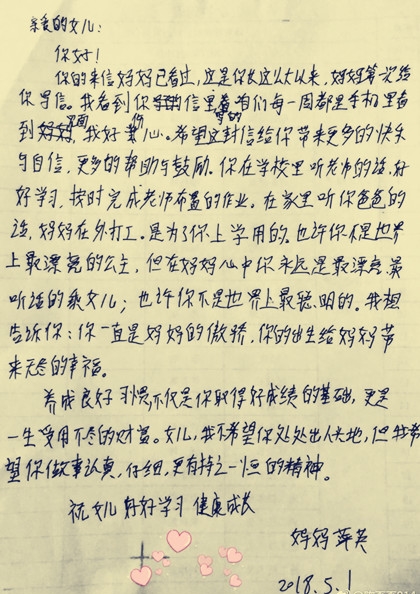 亲爱的女儿：
你好！
你的来信妈妈已看过，这是你长这么大以来，妈妈第一次给
你写信。我看到你写的信里写的咱们每一周都是手机里看
到妈妈，我好伤心。希望这封信给你带来更多的快乐
与自信，更多的帮助与鼓励。你在学校里听老师的话，好
好学习，按时完成老师布置的作业。在家里听你爸爸的
话，妈妈在外打工。是为了你上学用的。也许你不是世界
上最漂亮的公主，但在妈妈心中你永远是最漂亮最
听话的乖女儿；也许你不是世界上最聪明的。我想
告诉你：你一直是妈妈的傲骄，你的出生给妈妈带
来无尽的幸福。
养成良好习惯，不仅是你取得好成绩的基础，更是
一生受用不尽的财富。女儿，我不希望你处处出人头地，但我希
望你做事认真，仔细，更有持之一恒的精神。
祝女儿 好好学习 健康成长
妈妈 萍英
2018.5.1